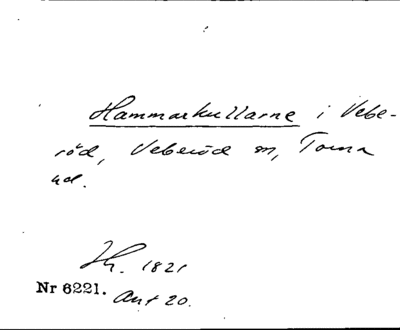 Hammarkullarne i Vebe-
röd, Veberöd sn, Torna
hd.
Jk. 1821
Nr 6221.
Akt 20.